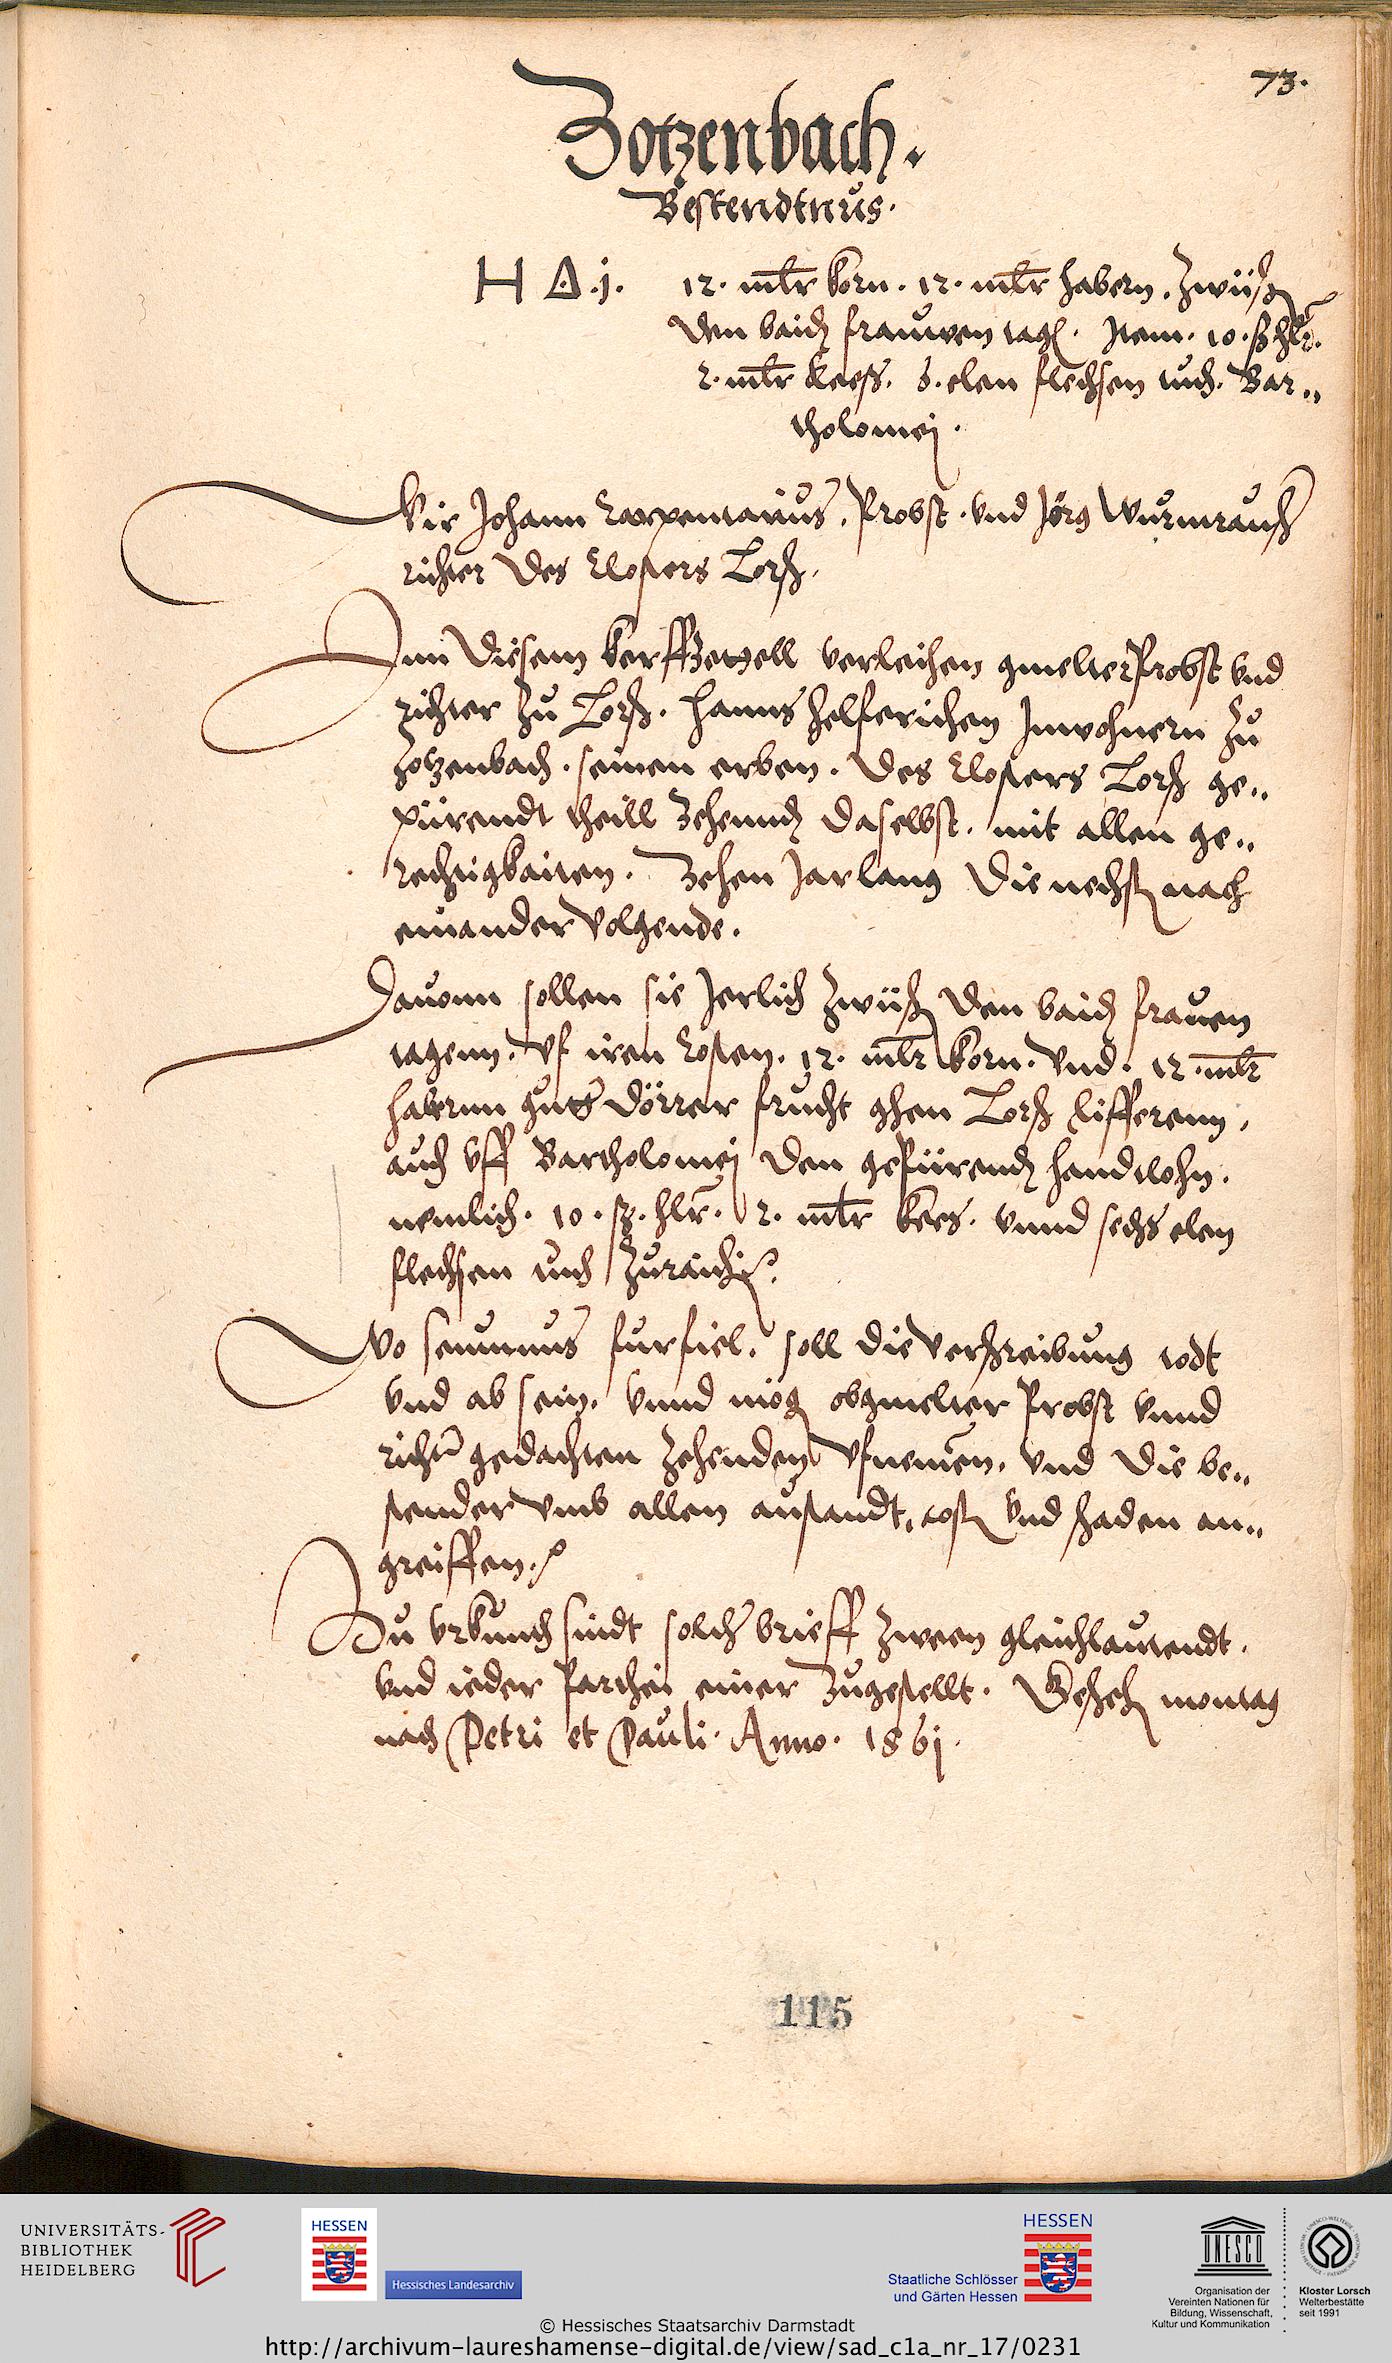 73.
Zotzenbach.
Bestendtnus.
H Δ .j. 12. mlr korn. 12. mlr habern. Zwüsch
den baiden frauwen tag. Item. 10. ß hlr.
2. mlr keeß. 6. elen flechsen tuch. Bar„
tholomej.
Wir Johann Carpentarius. Probst. vnd Jörg Wurmrausch
richter des Closters Lorsch.
Inn diesem kerffzettell verleihen gmelter Probst vnd
richter zu Lorsch. Hanns Helferichen Inwohnern zu
Zotzenbach. seinen erben. des Closters Lorsch ge„
pürendt theill Zehennd daselbst. mit allen ge„
rechtigkaiten. Zehen Jar lang die nechst nach
einander volgende.
Dauonn sollen sie Jerlich zwüsch den baiden frauen
tagenn. vf iren Costen. 12. mlr korn. vnd. 12. mlr
habernn gutt dörrer frucht ghen Lorsch liffernn,
auch vff Bartholomej den gepürend handtlohn.
nemlich. 10. ß. hlr. 2. mlr kees. vnnd sechs elen
flechsen tuch zuraichen.
Wo seumnus furfiel. soll die verschreibung todt
vnd ab sein. vnnd mög obgmelter Probst vnnd
richter gedachten Zehenden vfnemen. vnd die be„
stender vmb allen austandt, cost vnd schaden an„
greiffen.
Zu vrkundt sindt solcher brieff zween gleichlautendt.
vnd ieder Parthei einer zugestellt. Geschehen montag
nach Petri et Pauli. Anno. 1561.
115
UNIVERSITÄTS-
BIBLIOTHEK
HEIDELBERG
HESSEN
Hessisches Landesarchiv
Staatliche Schlösser
und Gärten Hessen
HESSEN
UNESCO
Organisation der
Vereinten Nationen für
Bildung, Wissenschaft,
Kultur und Kommunikation
Kloster Lorsch
Welterbestätte
seit 1991
© Hessisches Staatsarchiv Darmstadt
http://archivum-laureshamense-digital.de/view/sad_c1a_nr_17/0231